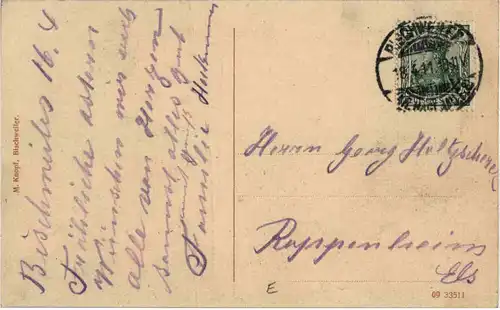 Bischweiler 16. 4
Fröhliche ostern
Wünschen wir euch
alle von Herzen
sammt alles gut
Familie
M. Knopf, Bischweiler.
BISCHWEILER
Herrn Georg Holtzscherer
Roppenheim
Els
E
09 33511